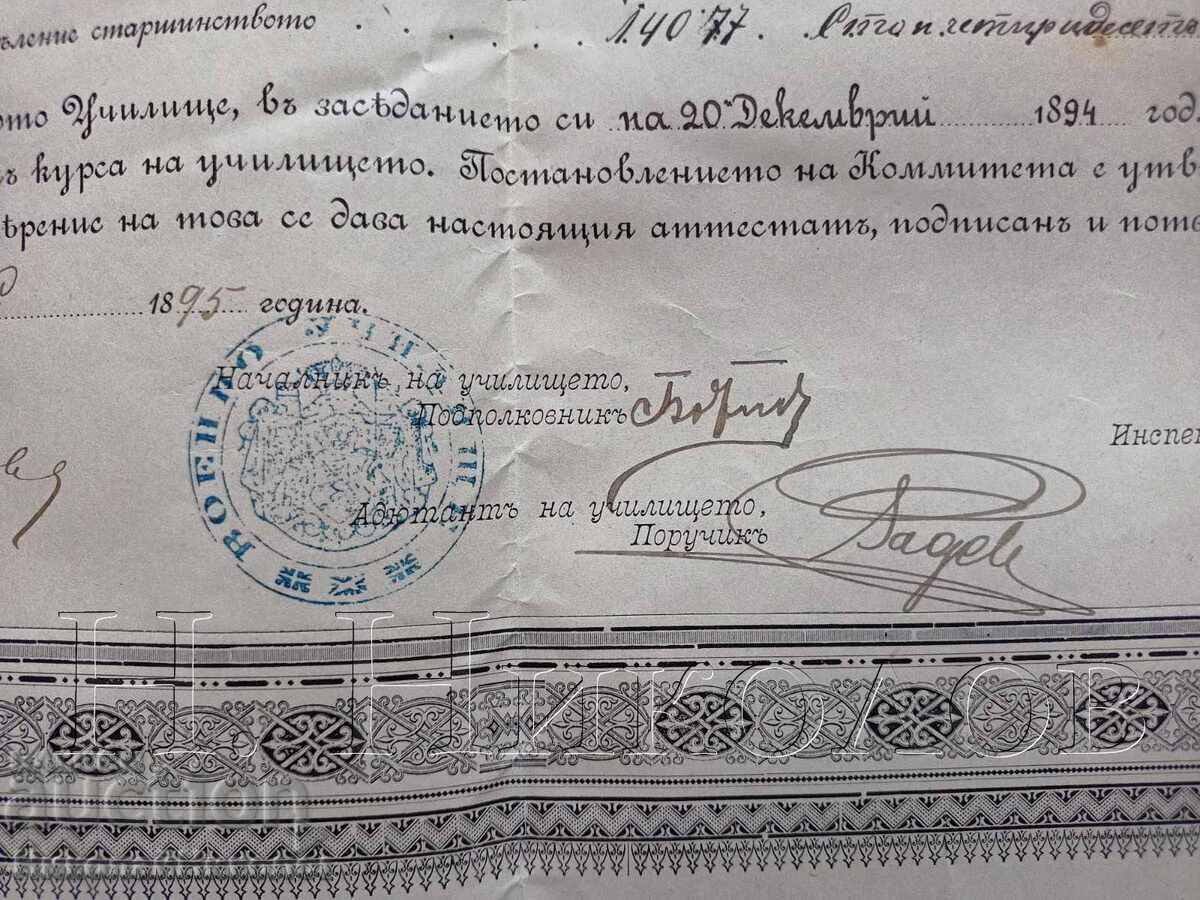 ѣление старшинството . . . . . . 140'77. Сто и четиридесеть
ото Училище, въ засѣданието си на 20й Декемврий 1894 год.
ъ курса на училището. Постановлението на Коммитета е утв
ѣрение на това се дава настоящия аттестатъ, подписанъ и потв
1895 година.
ВОЕННО УЧИЛИЩЕ
Началникъ на училището,
Подполковникъ
Инспе
Адютантъ на училището,
Поручикъ Радев
Н. Николов
auction